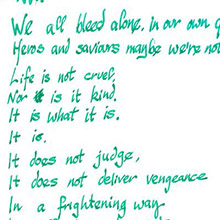 We all bleed alone, in our own
Heros and saviours maybe we're not
Life is not cruel,
Nor is it kind.
It is what it is.
It is.
It does not judge,
It does not deliver vengeance
In a frightening way